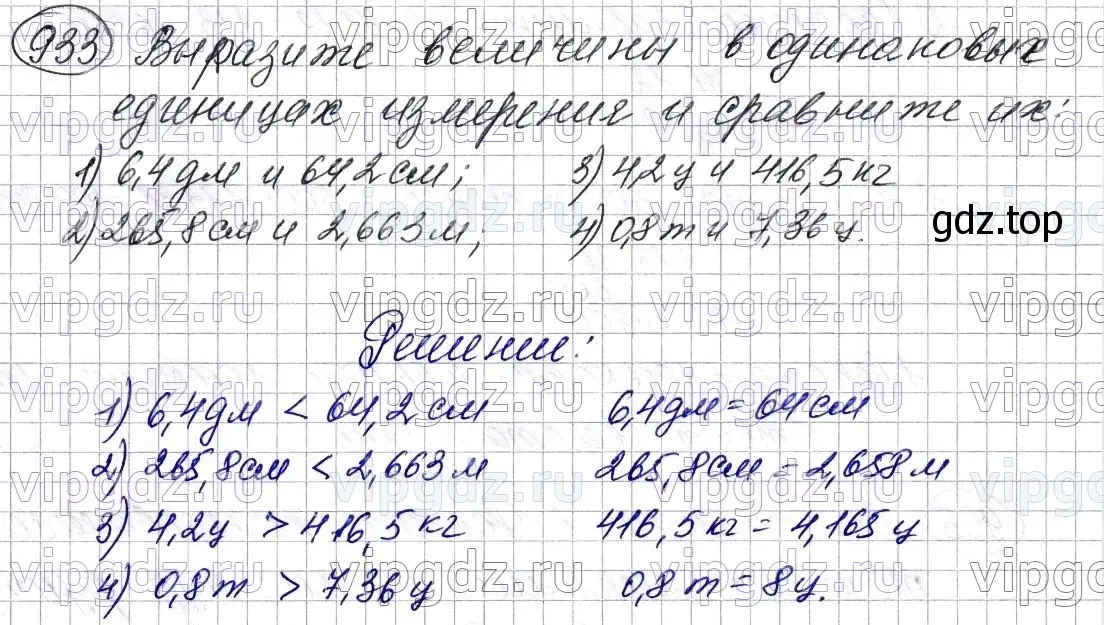 933 Выразите величины в одинаковых
единицах измерения и сравните их:
1) 6,4 дм и 64,2 см; 3) 4,2 ц и 416,5 кг
2) 265,8 см и 2,663 м; 4) 0,8 т и 7,36 ц.
gdz.top
Решение:
1) 6,4 дм < 64,2 см 6,4 дм = 64 см
2) 265,8 см < 2,663 м 265,8 см = 2,658 м
3) 4,2 ц > 416,5 кг 416,5 кг = 4,165 ц
4) 0,8 т > 7,36 ц 0,8 т = 8 ц.
vipgdz.ru